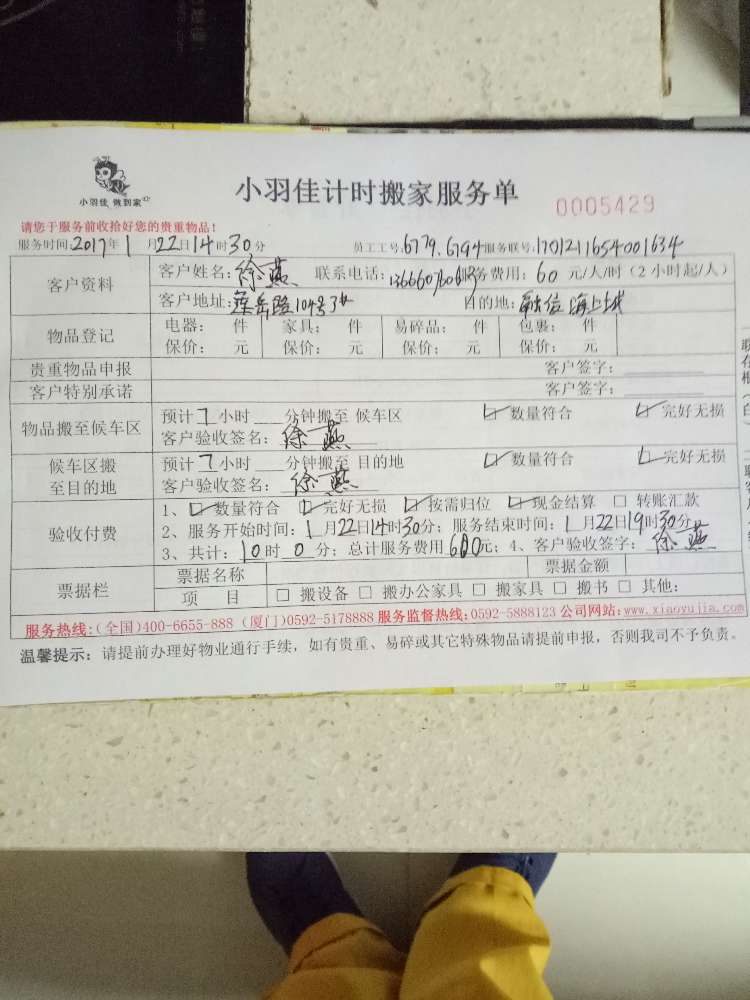 小羽佳 做到家
小羽佳计时搬家服务单
0005429
请您于服务前收拾好您的贵重物品！
服务时间:2017年1月22日14时30分 员工工号:6779.6794 服务联号:1701211654001634
客户资料 客户姓名:徐燕 联系电话: 服务费用: 60 元/人/时(2小时起/人)
客户地址: 104号 目的地: 海上城
物品登记 电器: 件 家具: 件 易碎品: 件 包裹: 件
保价: 元 保价: 元 保价: 元 保价: 元
贵重物品申报 客户签字:
客户特别承诺 客户签字:
物品搬至候车区 预计 小时 分钟搬至 候车区 数量符合 完好无损
客户验收签名: 徐燕
候车区搬至目的地 预计 小时 分钟搬至 目的地 数量符合 完好无损
客户验收签名: 徐燕
验收付费 1、数量符合 完好无损 按需归位 现金结算 □ 转账汇款
2、服务开始时间: 1月22日14时30分; 服务结束时间: 1月22日19时30分
3、共计: 10时0分; 总计服务费用600元; 4、客户验收签字: 徐燕
票据栏 票据名称 票据金额
项 目 □ 搬设备 □ 搬办公家具 □ 搬家具 □ 搬书 □ 其他:
服务热线:(全国)400-6655-888 (厦门)0592-5178888 服务监督热线:0592-5888123 公司网站:www.xiaoyujia.com
温馨提示: 请提前办理好物业通行手续，如有贵重、易碎或其它特殊物品请提前申报，否则我司不予负责。